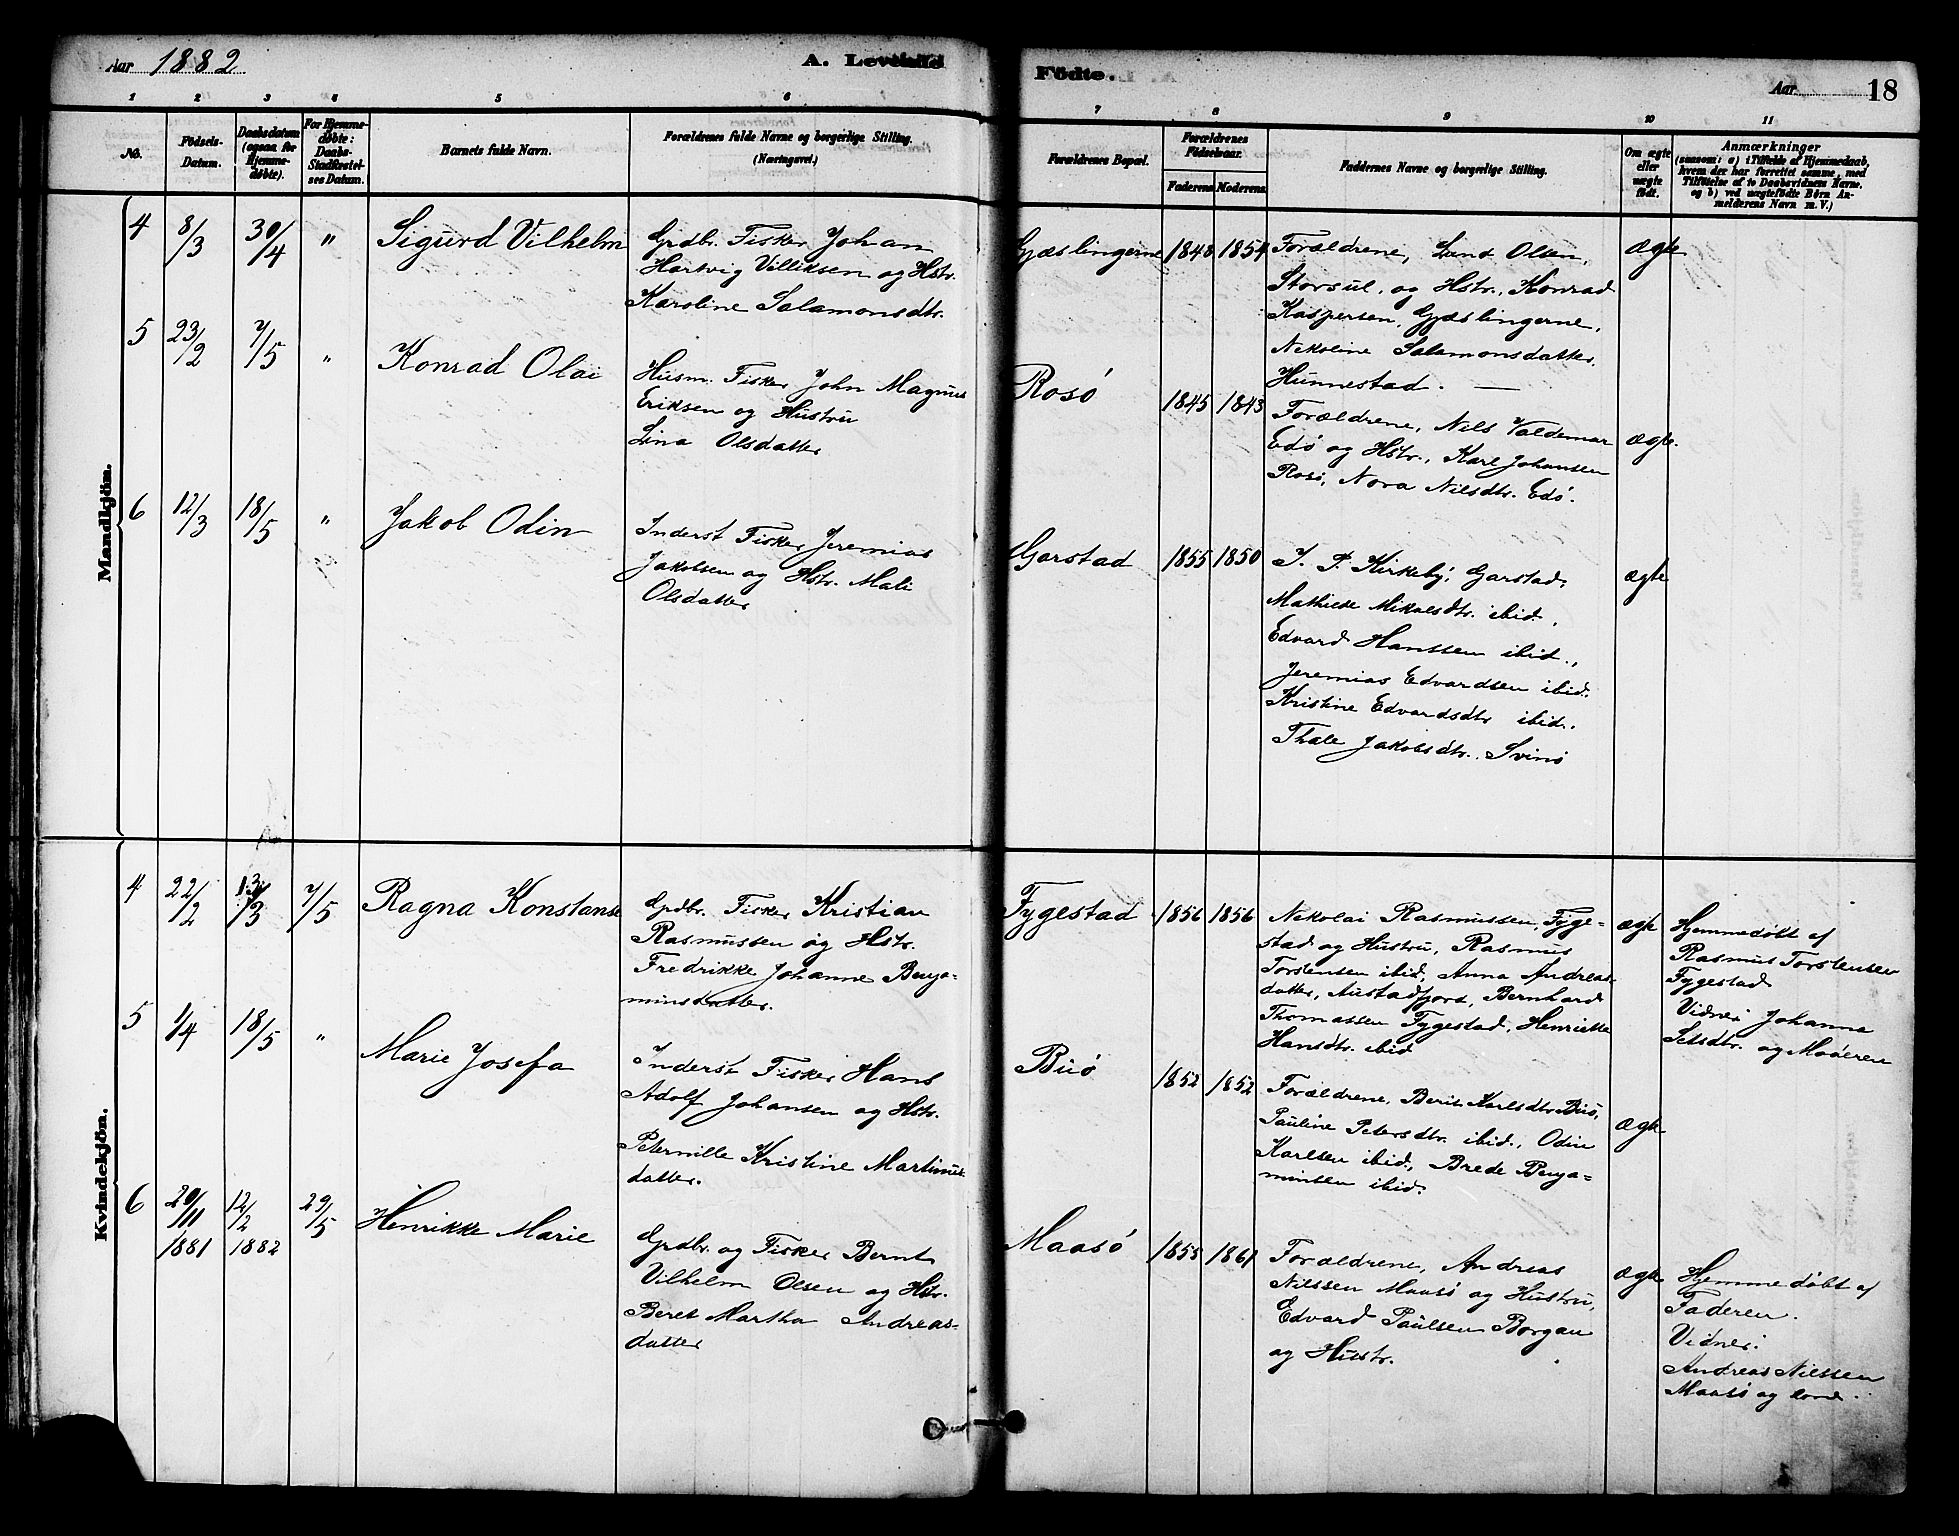 Aar 1882
A. Levende
1 2 3 4 5 6
No.
Födsels-
Datum.
Daabsdatum
(ogsaa for
Hjemme-
döbte).
For Hjemme-
døbte:
Daabs-
Stadfæstel-
ses Datum.
Barnets fulde Navn.
Forældrenes fulde Navne og borgerlige Stilling.
(Næringsvei.)
Födte.
Aar
18
7 8 9 10 11
Forældrenes Bopæl.
Forældrenes
Fødselsaar.
Faderens. Moderens.
Faddernes Navne og borgerlige Stilling.
Om ægte
eller
uægte
födt.
Anmærkninger
(saasom: a) i Tilfælde af Hjemmedaab,
hvem der har forrettet samme, med
Tilföielse af to Daabsvidners Navne.
og b) ved uægtefödte Børn An-
melderens Navn m. V.)
Mandkjön.
4 8/3 30/4 " Sigurd Vilhelm
Grdbr. Fisker Johan
Hartvig Villiksen og Hstr.
Karoline Salamonsdtr.
Gjæslingerne 1848 1854
Forældrene, Olsen,
Storsul. og Hstr., Konrad
Kaspersen, Gjæslingerne,
Nekoline Salamonsdatter
Hunnestad. —
ægte
5 23/2 7/5 " Konrad Olai
Husm. Fisker John Magnus
Eriksen og Hustru
Lina Olsdatter
Rosö 1845 1843
Forældrene, Nils Valdemar
Edö og Hstr., Karl Johansen
Rosö, Nora Nilsdtr. Edö.
ægte.
6 12/3 18/5 " Jakob Odin
Inderst Fisker Jeremias
Jakobsen og Hstr. Mali
Olsdatter
Garstad 1855 1850
I. P. Kirkeby, Garstad,
Mikalsdtr. ibid.,
Edvard Hanssen ibid.,
Jeremias Edvardsen ibid.
Kristine Edvardsdtr ibid.,
Thale Jakobsdtr. Svinö
ægte
Kvindekjön.
4 22/2 13/3 7/5 Ragna Konstanse
Grdbr. Fisker Kristian
Rasmussen og Hstr.
Fredrikke Johanne Benja-
minsdatter.
Fygestad 1856 1856
Nekolai Rasmussen, Fyge-
stad og Hustru, Rasmus
Torstensen ibid, Anna Andreas-
datter, Austadfjord, Bernhard
Thomassen Fygestad, Henrikke
Hansdtr. ibid
ægte
Hjemmedøbt af
Rasmus Torstensen
Fygestad
Vidner Johanna
og Moderen
5 1/4 18/5 " Marie Josefa
Inderst Fisker Hans
Adolf Johansen og Hstr.
Peternille Kristine Martinus-
datter.
Buö 1852 1852
Forældrene, Berit Karlsdtr. Buö,
Pauline Petersdtr. ibid., Odin
Karlsen ibid., Brede Benja-
minsen ibid.
ægte
6 20/11 1881 12/2 1882 29/5 Henrikke Marie
Grdbr. og Fisker Bernt
Vilhelm Olsen og Hstr.
Beret Martha Andreas-
datter
Maasö 1855 1861
Forældrene, Andreas
Nilssen Maasö og Hustru,
Edvard Paulsen Borgan
og Hustr.
ægte
Hjemmedöbt af
Faderen.
Vidner:
Andreas Nilssen
Maasö og